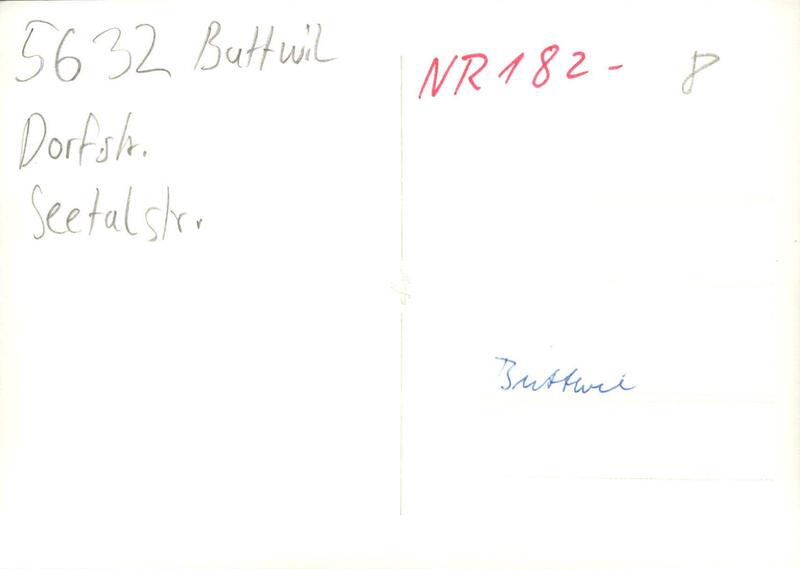 5632 Buttwil
Dorfstr.
Seetalstr.
NR 182 - 8
Buttwil